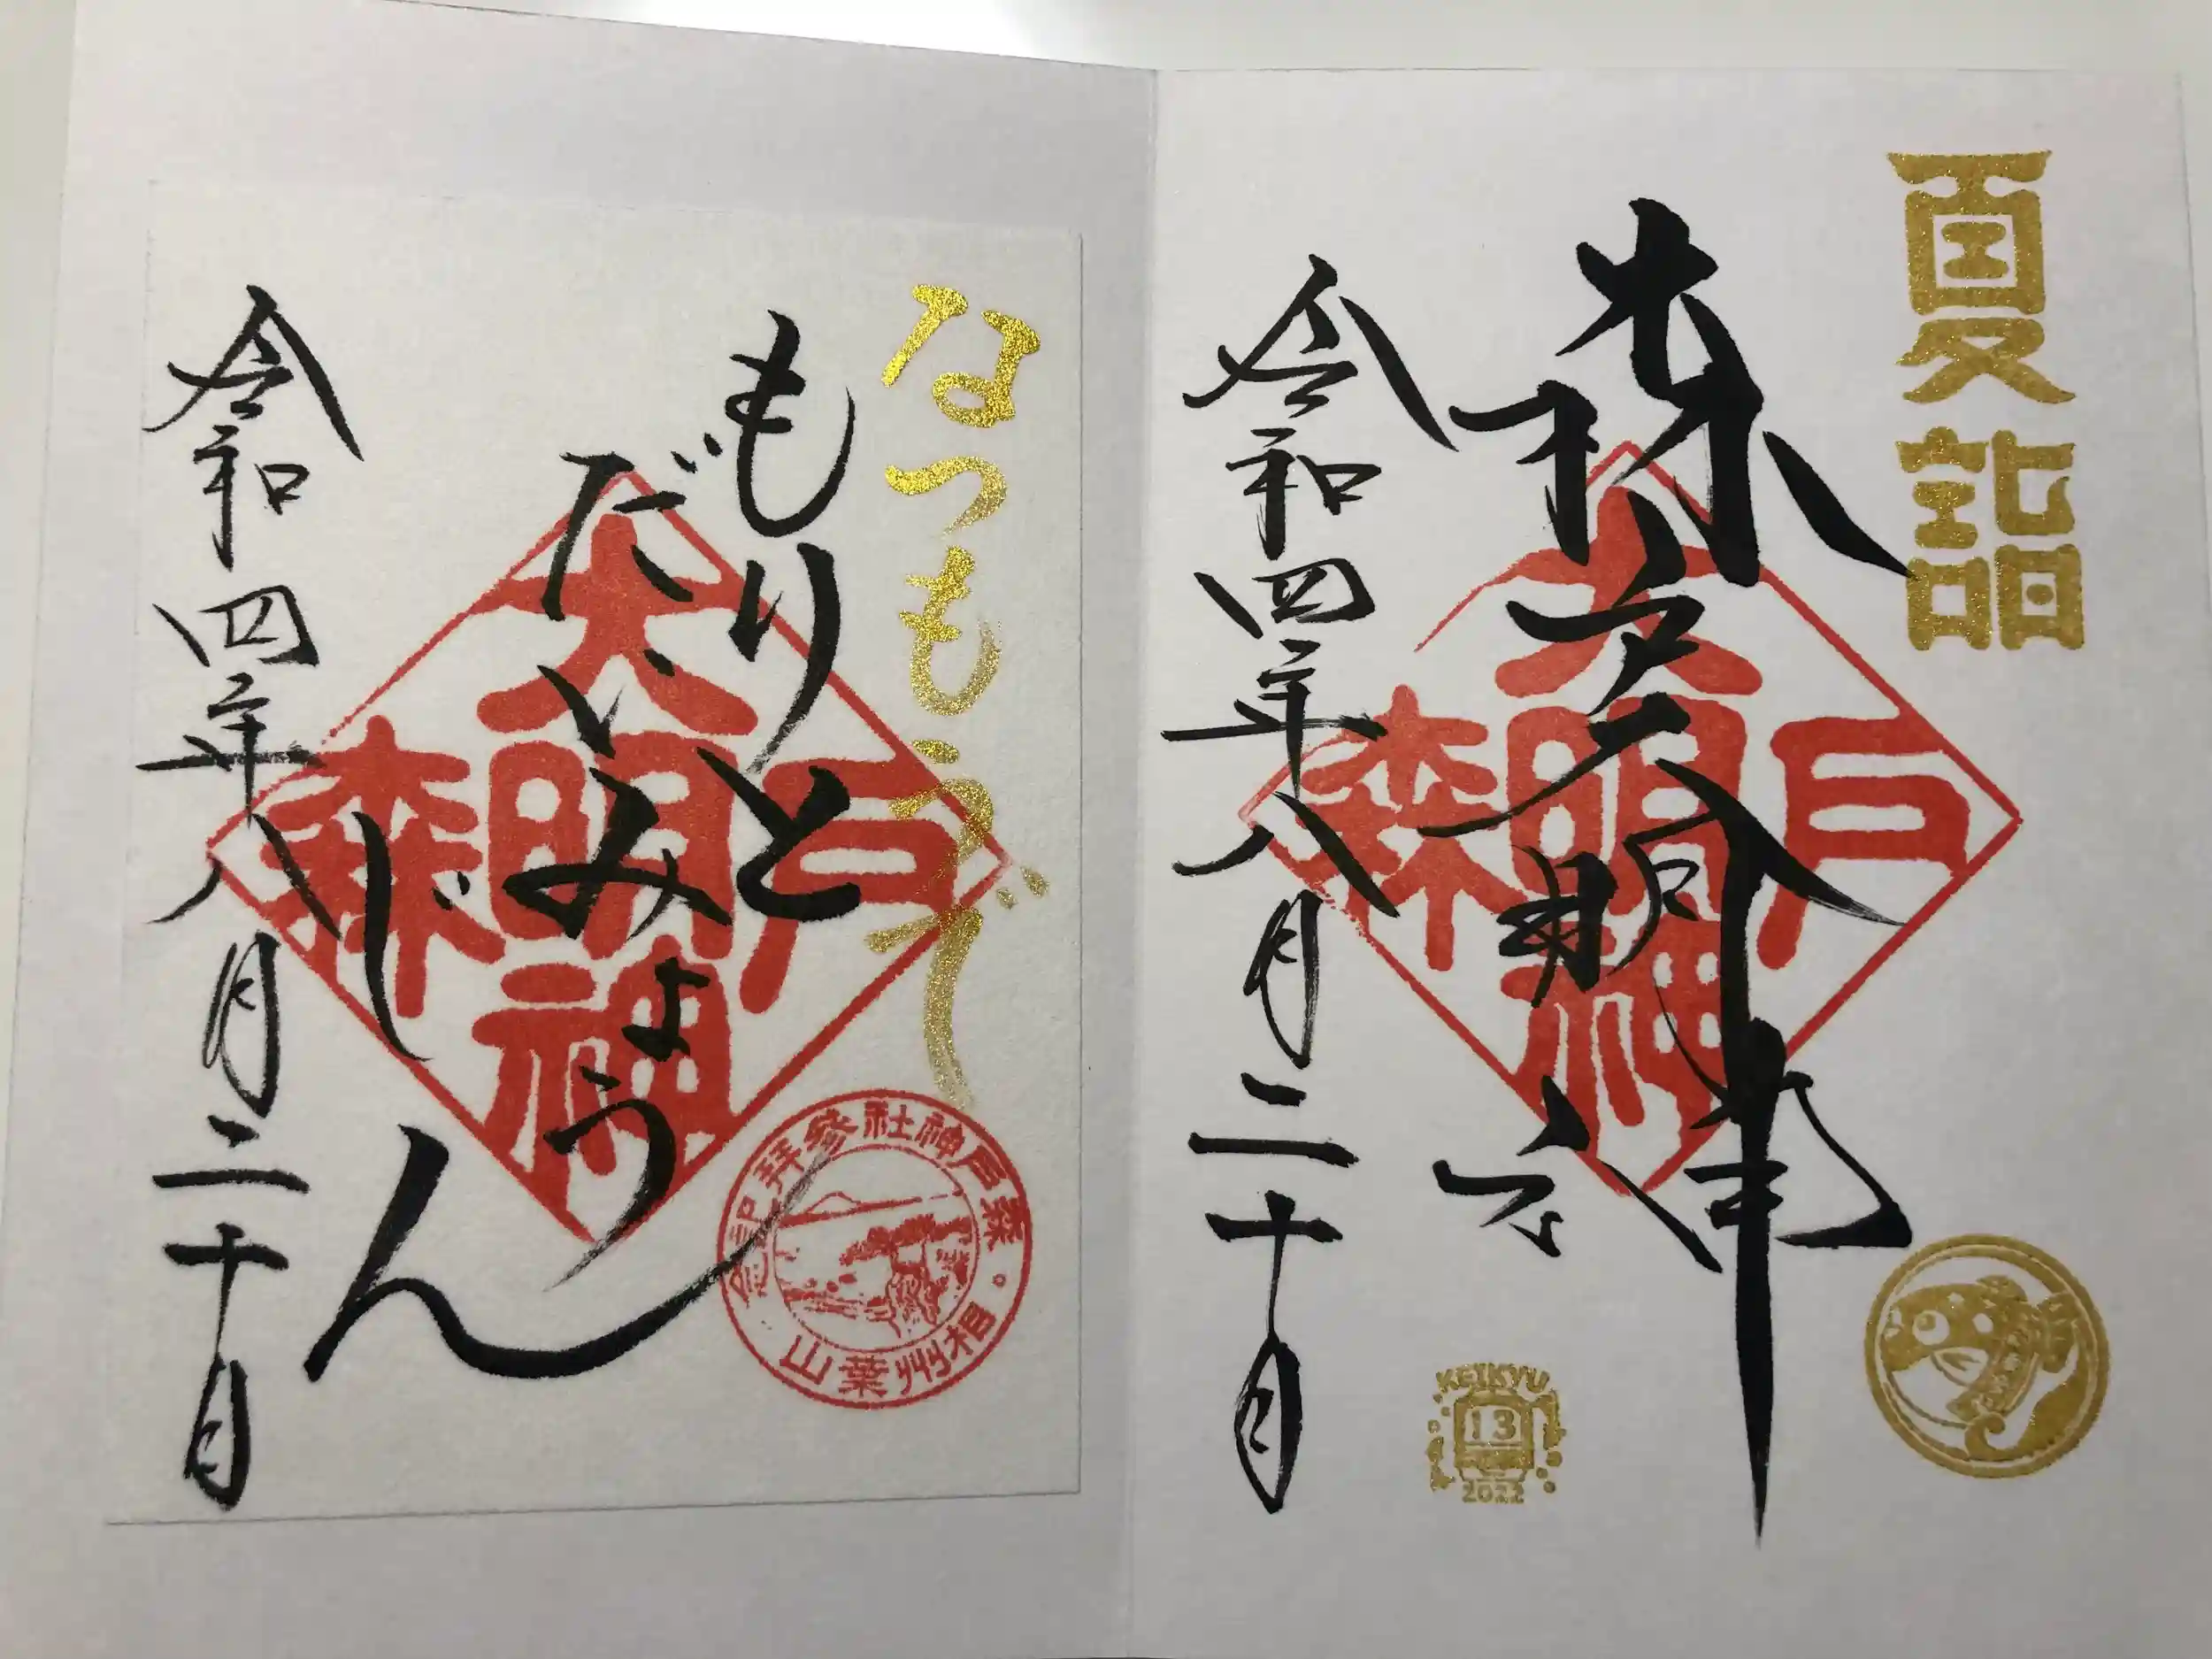 夏詣
森戸大明神
令和四年八月二十日
大
森明戸
神
KEIKYU
13
2022
なつもうで
もりと
だいみょう
じん
令和四年八月二十日
大
森明戸
神
相州葉山
森戸神社參拜記念